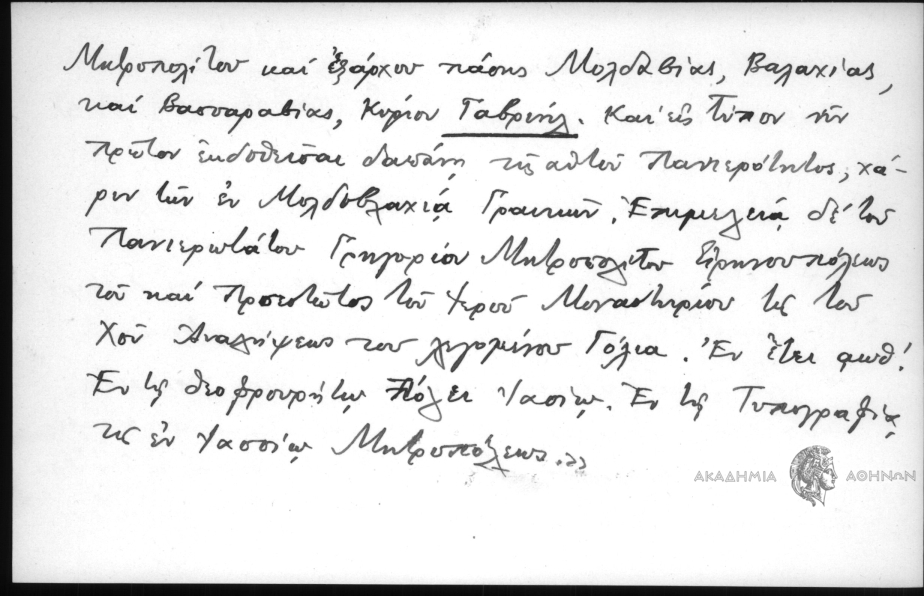 Μητροπολίτου καί ἐξάρχου πάσης Μολδαβίας, Βαλαχίας,
καί Βασσαραβίας, Κυρίου Γαβριήλ. Καί εἰς τύπον νῦν
πρῶτον ἐκδοθεῖσαι δαπάνῃ τῆς αὐτοῦ Πανιερότητος, χά-
ριν τῶν ἐν Μολδοβλαχίᾳ Γραικῶν. Ἐπιμελείᾳ δέ τοῦ
Πανιερωτάτου Γρηγορίου Μητροπολίτου Εἰρηνουπόλεως
τοῦ καί Προεστῶτος τοῦ Ἱεροῦ Μοναστηρίου τῆς τοῦ
Χοῦ Ἀναλήψεως του λεγομένου Γόλια. Ἐν ἔτει
Ἐν τῇ θεοφρουρήτῳ Πόλει Ἰασίῳ. Ἐν τῇ Τυπογραφίᾳ
τῆς ἐν Ἰασσίῳ Μητροπόλεως.»
ΑΚΑΔΗΜΙΑ ΑΘΗΝΩΝ